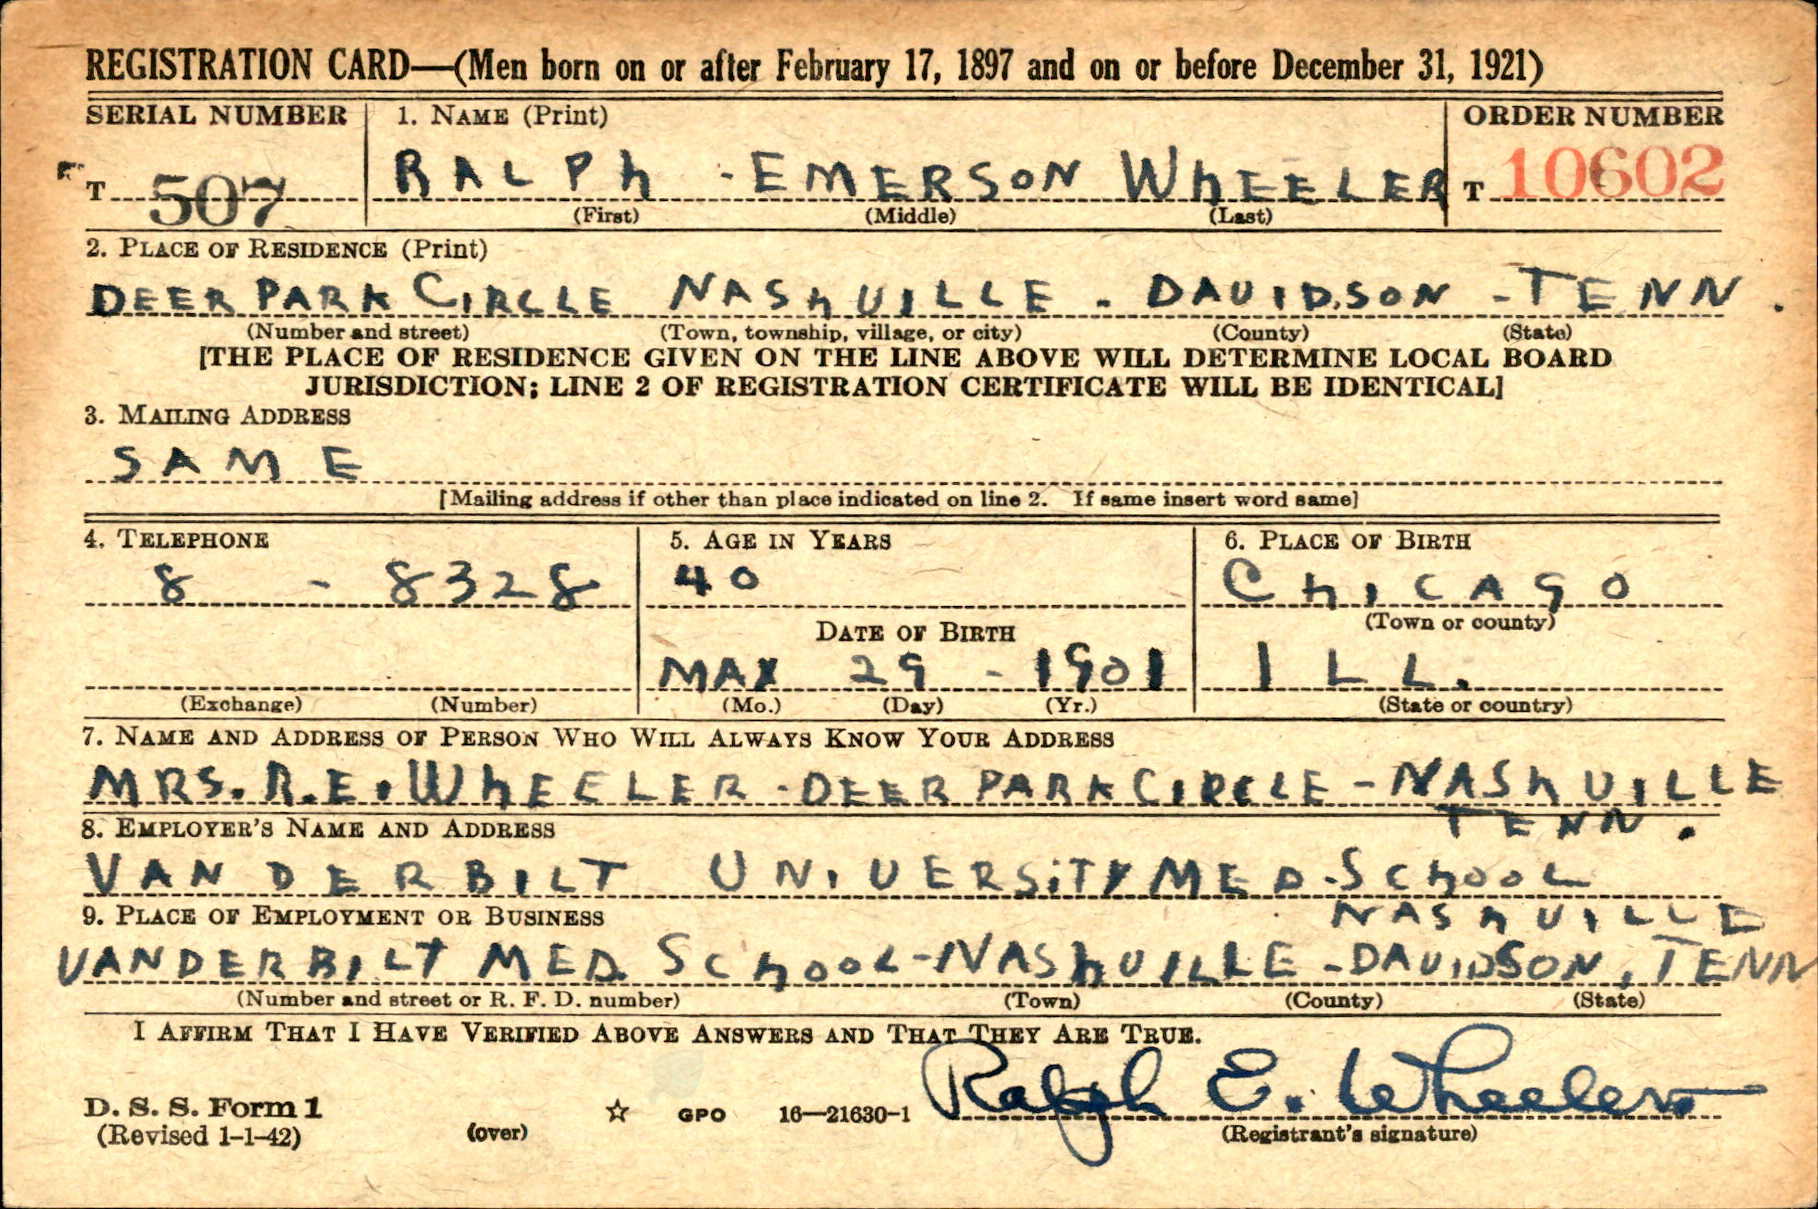 REGISTRATION CARD—(Men born on or after February 17, 1897 and on or before December 31, 1921)
SERIAL NUMBER 1. NAME (Print) ORDER NUMBER
T 507 RALPh - EMERSON WhEELER T 10602
(First) (Middle) (Last)
2. PLACE OF RESIDENCE (Print)
DEER PARK CIRCLE NAShVILLE - DAVIDSON - TENN.
(Number and street) (Town, township, village, or city) (County) (State)
[THE PLACE OF RESIDENCE GIVEN ON THE LINE ABOVE WILL DETERMINE LOCAL BOARD
JURISDICTION; LINE 2 OF REGISTRATION CERTIFICATE WILL BE IDENTICAL]
3. MAILING ADDRESS
SAME
[Mailing address if other than place indicated on line 2. If same insert word same]
4. TELEPHONE 5. AGE IN YEARS 6. PLACE OF BIRTH
8 - 8328 40 ChICAGO
(Town or county)
DATE OF BIRTH
MAY 29 - 1901 ILL.
(Exchange) (Number) (Mo.) (Day) (Yr.) (State or country)
7. NAME AND ADDRESS OF PERSON WHO WILL ALWAYS KNOW YOUR ADDRESS
MRS. R.E. WhEELER - DEER PARK CIRCLE - NAShVILLE
TENN.
8. EMPLOYER'S NAME AND ADDRESS
VANDERBILT UNIVERSiTY MED. SChOOL
NAShVILLE
9. PLACE OF EMPLOYMENT OR BUSINESS
VANDERBILT MED. SChOOL - NAShVILLE - DAVIDSON, TENN
(Number and street or R. F. D. number) (Town) (County) (State)
I AFFIRM THAT I HAVE VERIFIED ABOVE ANSWERS AND THAT THEY ARE TRUE.
Ralph E. Wheeler
D. S. S. Form 1
(Revised 1-1-42) (over) GPO 16—21630-1 (Registrant's signature)